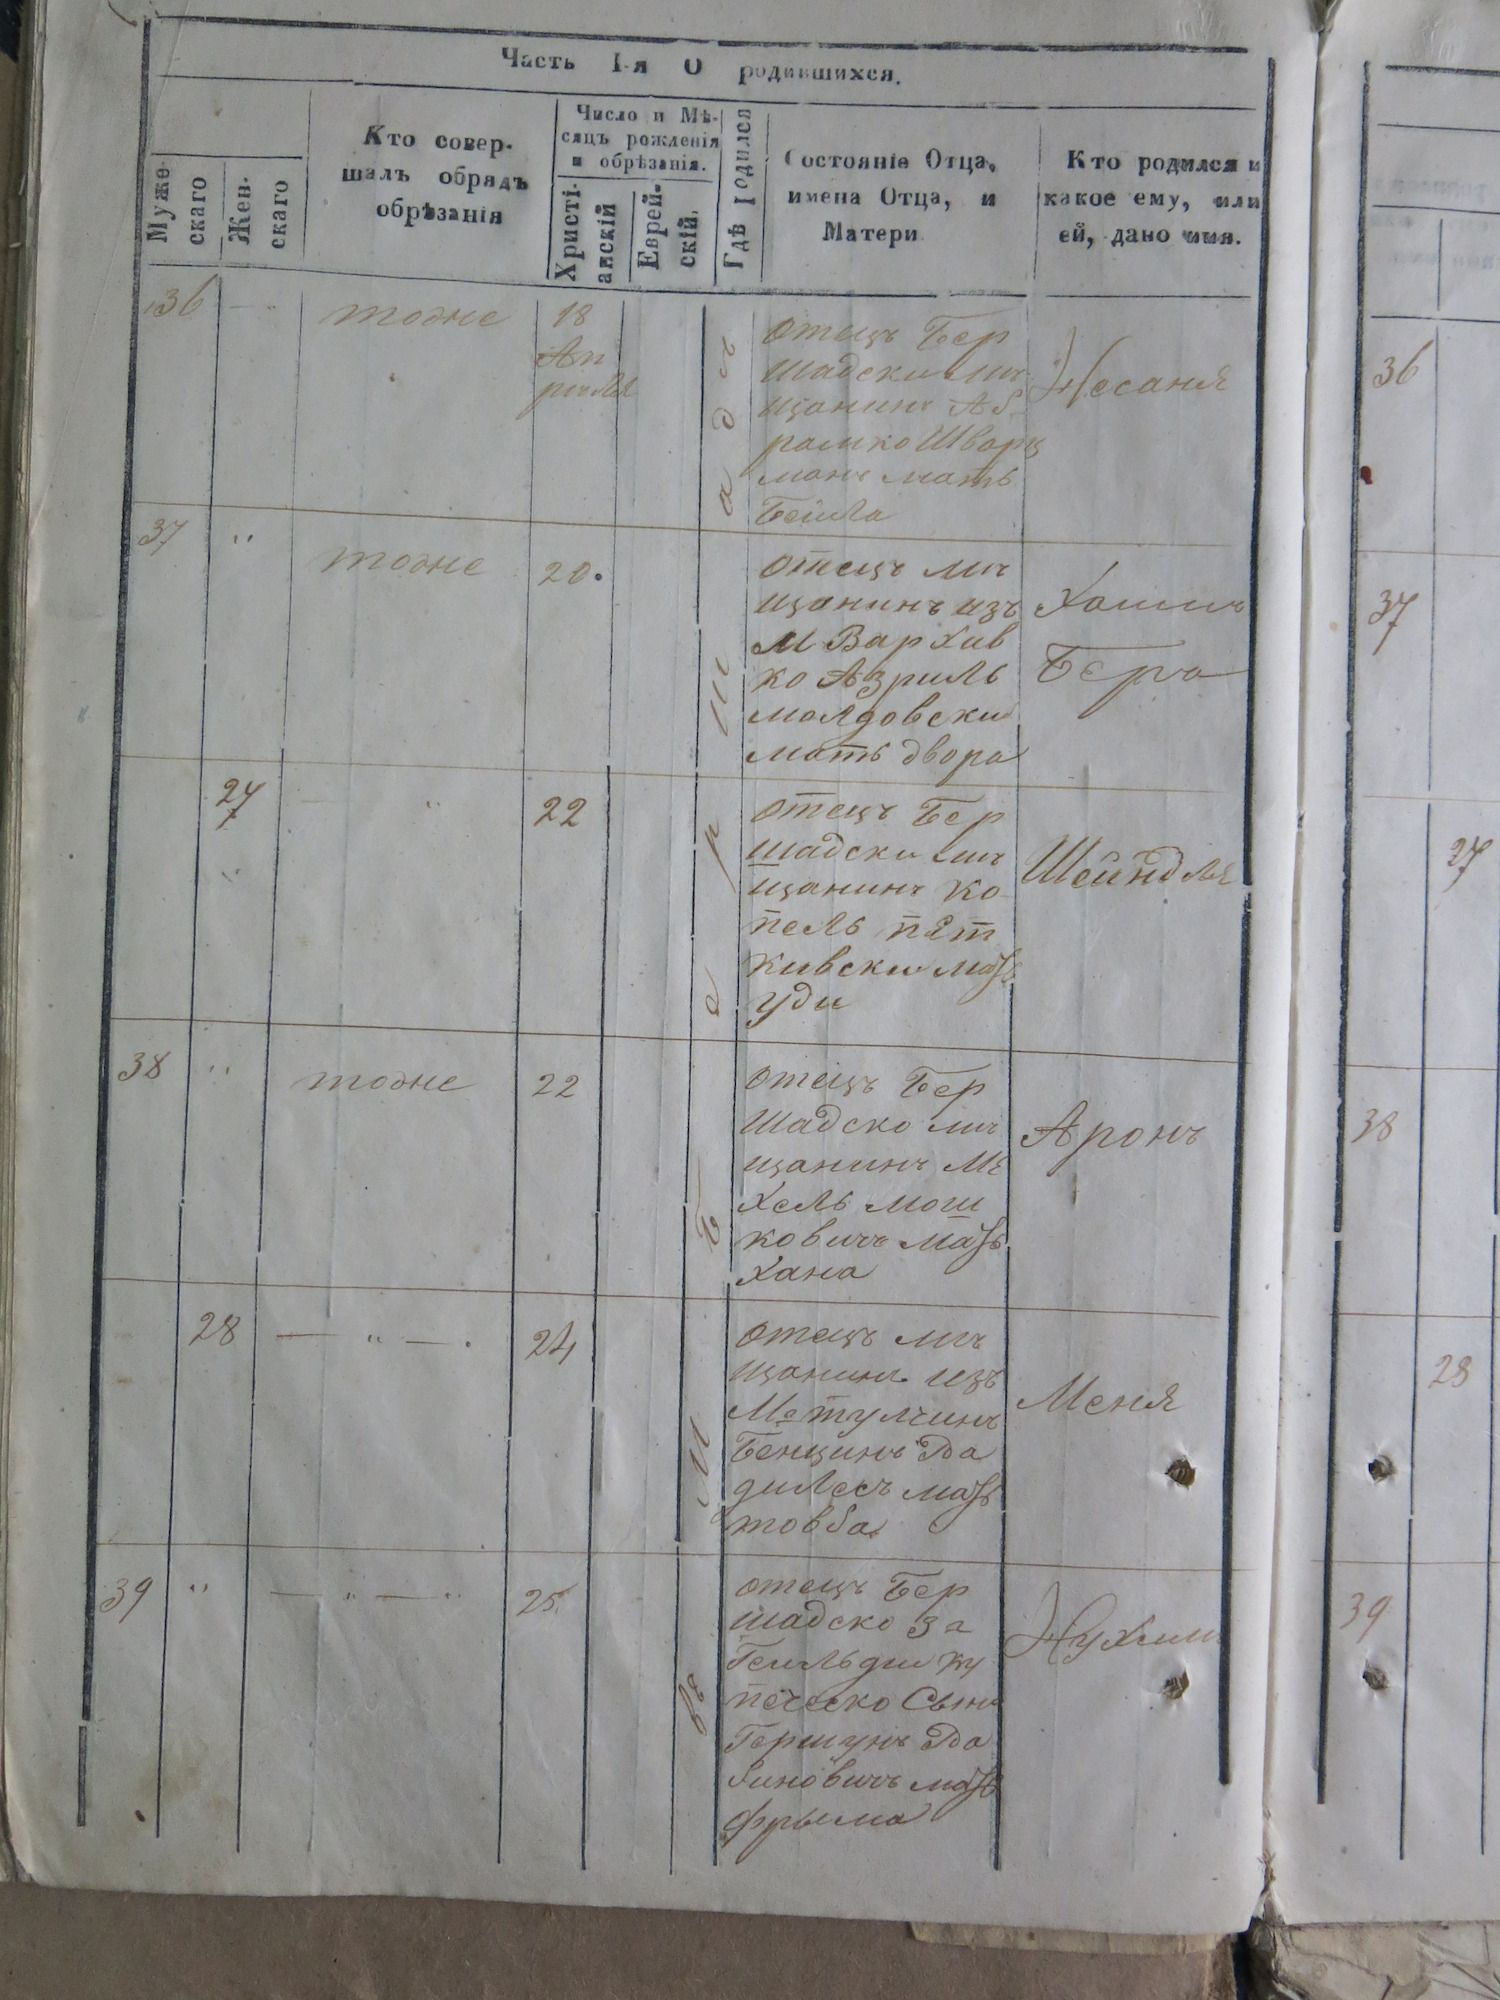 Часть I-я О родившихся.
Муже
скаго
Жен-
скаго
Кто совер-
шалъ обрядъ
обрѣзанія
Число и Мѣ-
сяцъ рожденія
и обрѣзанія.
Христі-
анскій
Еврей-
скій.
Гдѣ родился
Состояніе Отца,
имена Отца, и
Матери
Кто родился и
какое ему, или
ей, дано имя.
36
тодже
18
Ап
риля
отецъ Бер
шадски мѣ
щанинъ Аб-
рамко Шварц
манъ мать
Бейла
Несаня
37 "
тодже
20.
отецъ мѣ
щанинъ изъ
М Вархив
ко Азриль
молдовски
мать двора
Хаимъ
Берко
27
"
22
отецъ Бер
шадски мѣ
щанинъ Ко
пель пят
кивски мать
уди
Шейндля
38 "
тодже
22
отецъ Бер
шадско мѣ
щанинъ Ме
хель мош
ковичъ мать
хана
Аронъ
28
— " —.
24
отецъ мѣ
щанинъ изъ
Ме тулчинъ
Бенционъ
мать
товба
Меня
39 "
— " — "
25.
отецъ Бер
шадско 3 а
Гильдии ку
печеско Сынъ
Гершунъ Да
биновичъ мать
фрыма
Нухимъ
М Бершадѣ
36
37
27
38
28
39